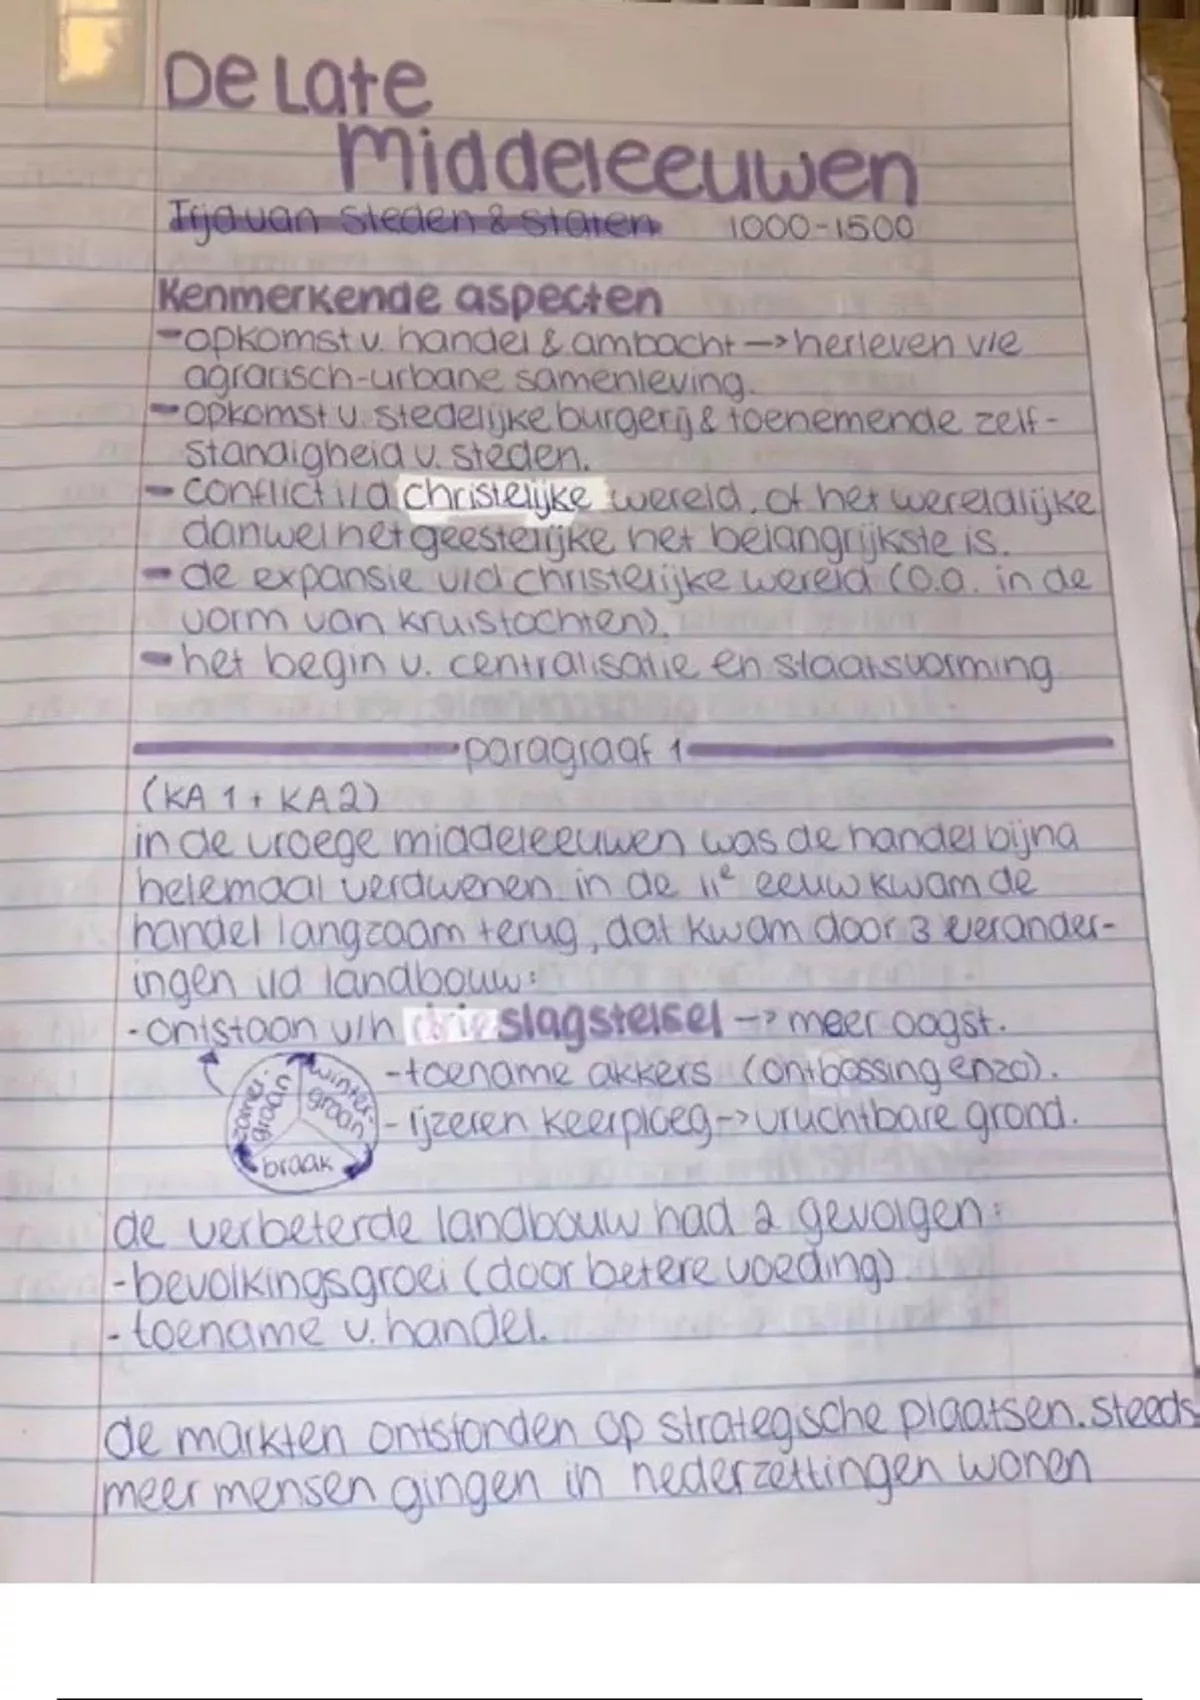 De Late
Middeleeuwen
Tijd van steden & staten 1000-1500
Kenmerkende aspecten
- opkomst v. handel & ambacht → herleven v/e
agrarisch-urbane samenleving.
- opkomst v. stedelijke burgerij & toenemende zelf-
standigheid v. steden.
- conflict i/d christelijke wereld, of het wereldlijke
danwel het geestelijke het belangrijkste is.
- de expansie v/d christelijke wereld (o.a. in de
vorm van kruistochten).
- het begin v. centralisatie en staatsvorming
paragraaf 1
(KA 1 + KA 2)
in de vroege middeleeuwen was de handel bijna
helemaal verdwenen. in de 11e eeuw kwam de
handel langzaam terug, dat kwam door 3 verander-
ingen i/d landbouw:
- ontstaan v/h drieslagstelsel → meer oogst.
- toename akkers (ontbossing enzo).
- ijzeren keerploeg → vruchtbare grond.
zomer-
graan
winter-
graan
braak
de verbeterde landbouw had 2 gevolgen:
- bevolkingsgroei (door betere voeding)
- toename v. handel.
de markten ontstonden op strategische plaatsen. steeds
meer mensen gingen in nederzettingen wonen